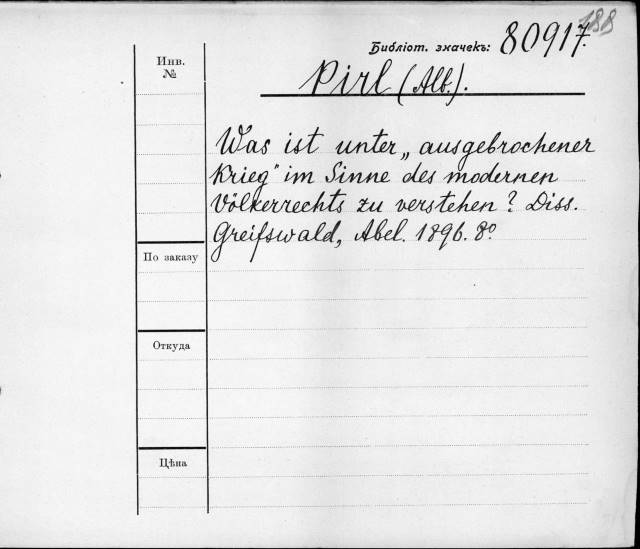 188
Библіот. значекъ: 80917.
Инв.
№
Pirl (Alb.).
Was ist unter „ausgebrochener
Krieg" im Sinne des modernen
Völkerrechts zu verstehen? Diss.
Greifswald, Abel. 1896. 8º
По заказу
Откуда
Цѣна